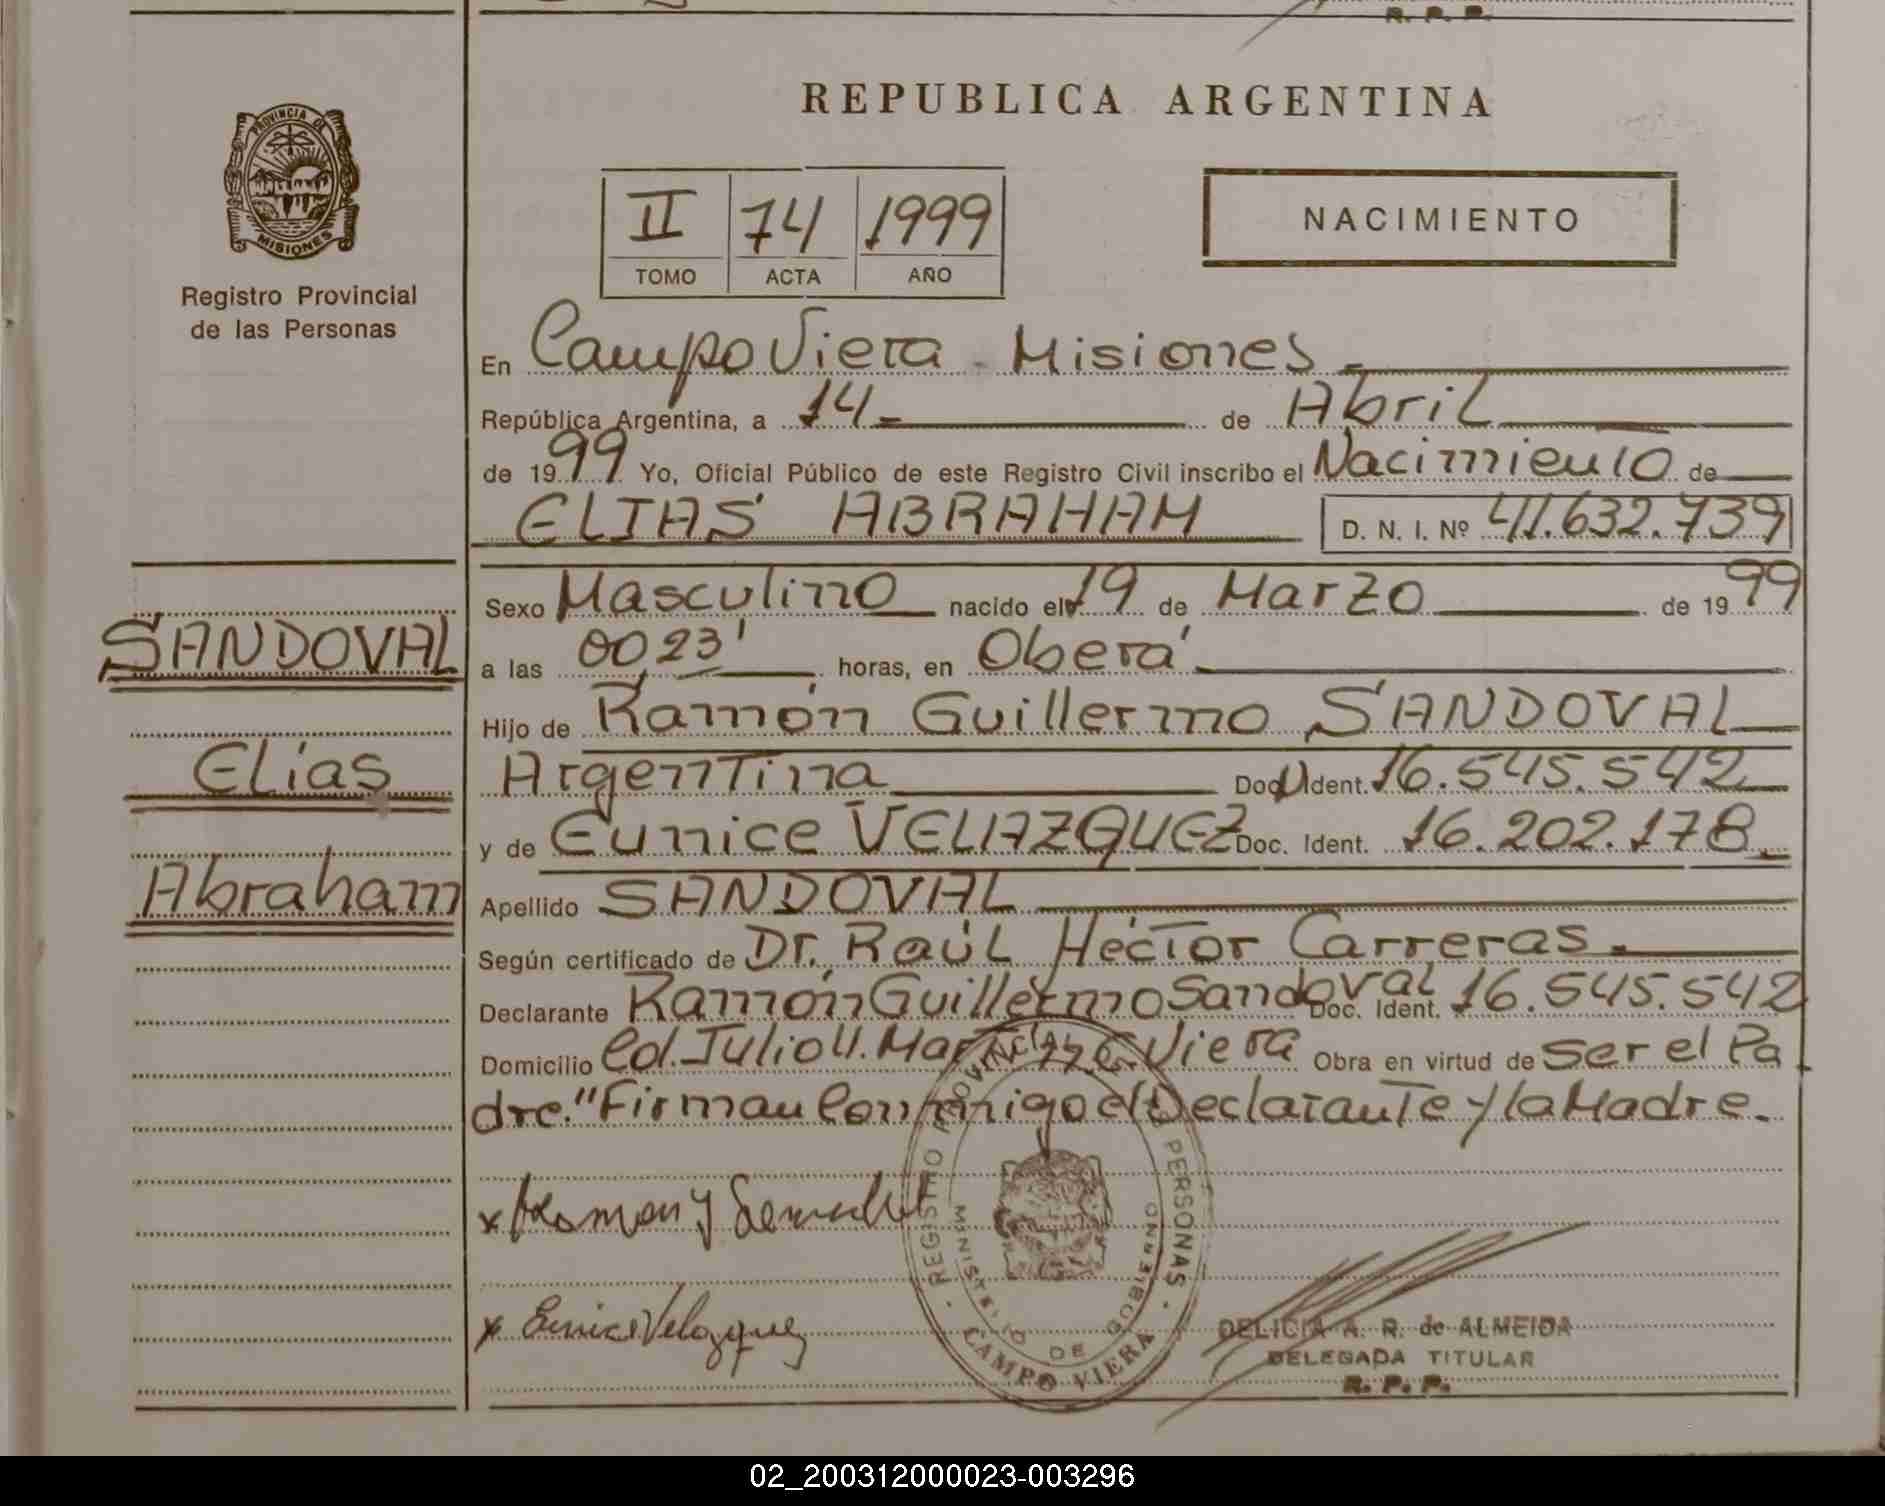 R. P. P.
PROVINCIA DE
MISIONES
Registro Provincial
de las Personas
REPUBLICA ARGENTINA
II 74 1999
TOMO ACTA AÑO
NACIMIENTO
En Campo Viera - Misiones.
República Argentina, a 14 de Abril
de 1999 Yo, Oficial Público de este Registro Civil inscribo el Nacimiento de
ELIAS ABRAHAM D. N. I. Nº 41.632.739
SANDOVAL
Elías
Abraham
Sexo Masculino nacido el 19 de Marzo de 1999
a las 00,23' horas, en Oberá
Hijo de Ramón Guillermo SANDOVAL
Argentina Doc. Ident. 16.545.542
y de Eunice VELAZQUEZ Doc. Ident. 16.202.178.
Apellido SANDOVAL
Según certificado de Dr. Raúl Héctor Carreras.
Declarante Ramón Guillermo Sandoval Doc. Ident. 16.545.542
Domicilio Cd. Julio U. Viera Obra en virtud de Ser el Pa
dre." Firman Conmigo el Declarante y la Madre.
x Eunice Velazquez
REGISTRO PROVINCIAL DE PERSONAS
MINISTERIO DE GOBIERNO
CAMPO VIERA
DELICIA A. R. de ALMEIDA
DELEGADA TITULAR
R. P. P.
02_200312000023-003296